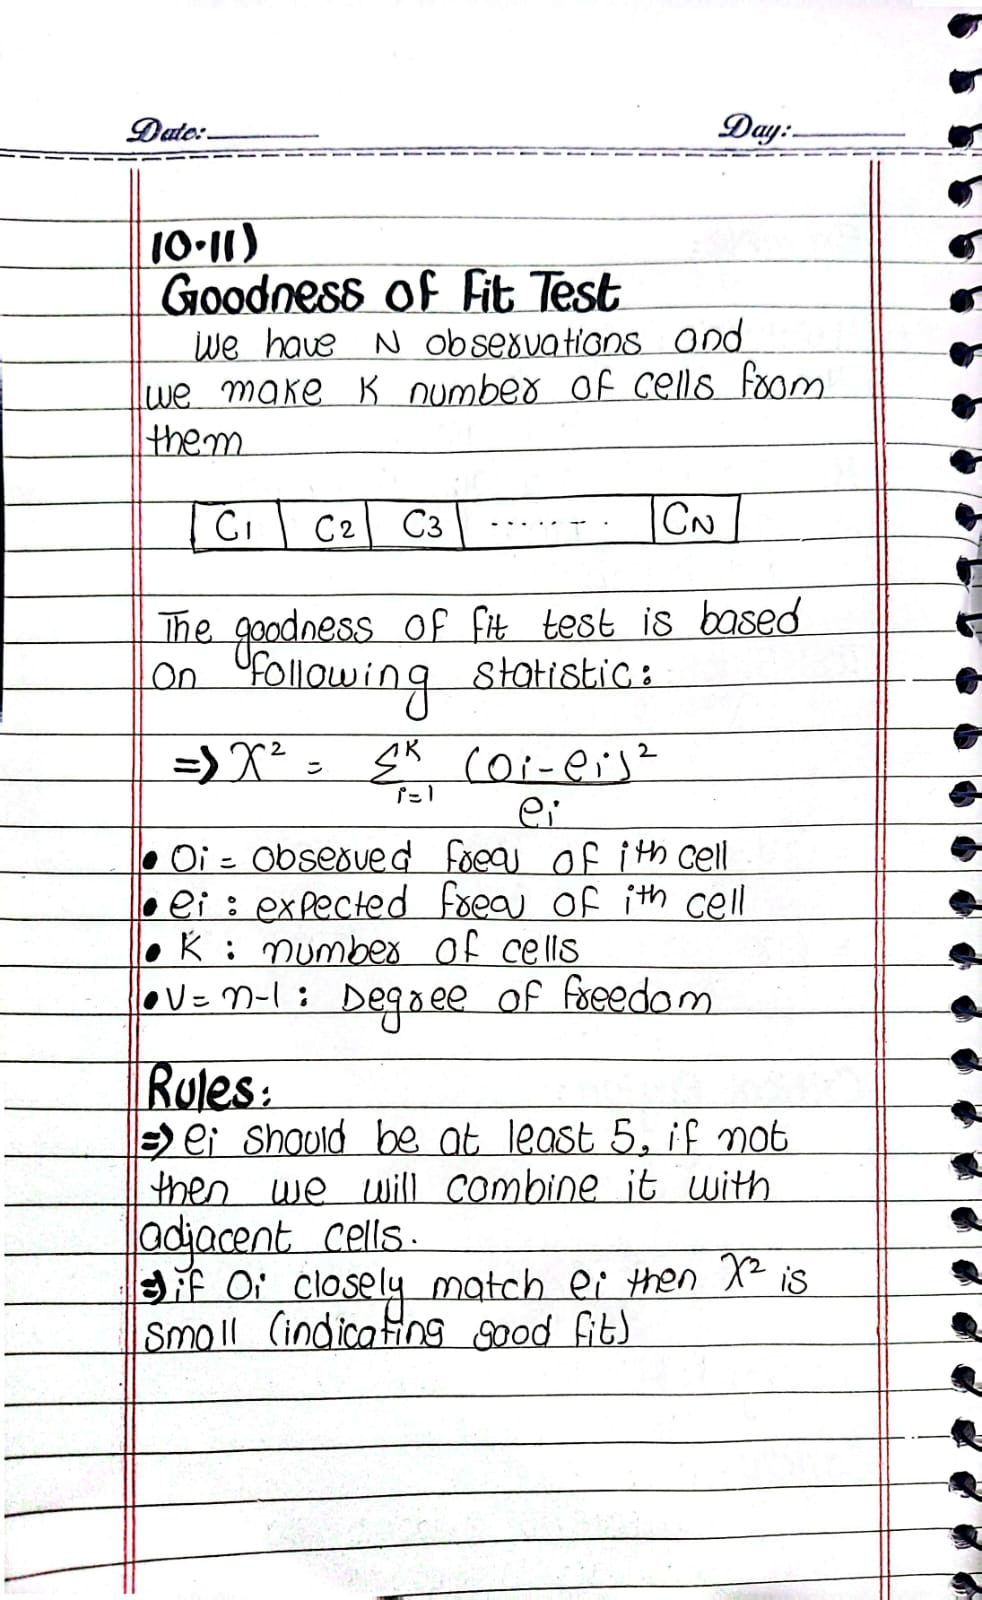 Date: Day:
10.11)
Goodness of Fit Test
We have N observations and
we make K number of cells from
them
C1 C2 C3 ....... CN
The goodness of fit test is based
on following statistic:
=> X² = Σ^K_{i=1} (oi-ei)² / ei
• Oi = Observed freq of ith cell
• ei : expected freq of ith cell
• K : number of cells
• V = n-1 : Degree of freedom
Rules:
=> ei should be at least 5, if not
then we will combine it with
adjacent cells.
=> if Oi closely match ei then X² is
small (indicating good fit)